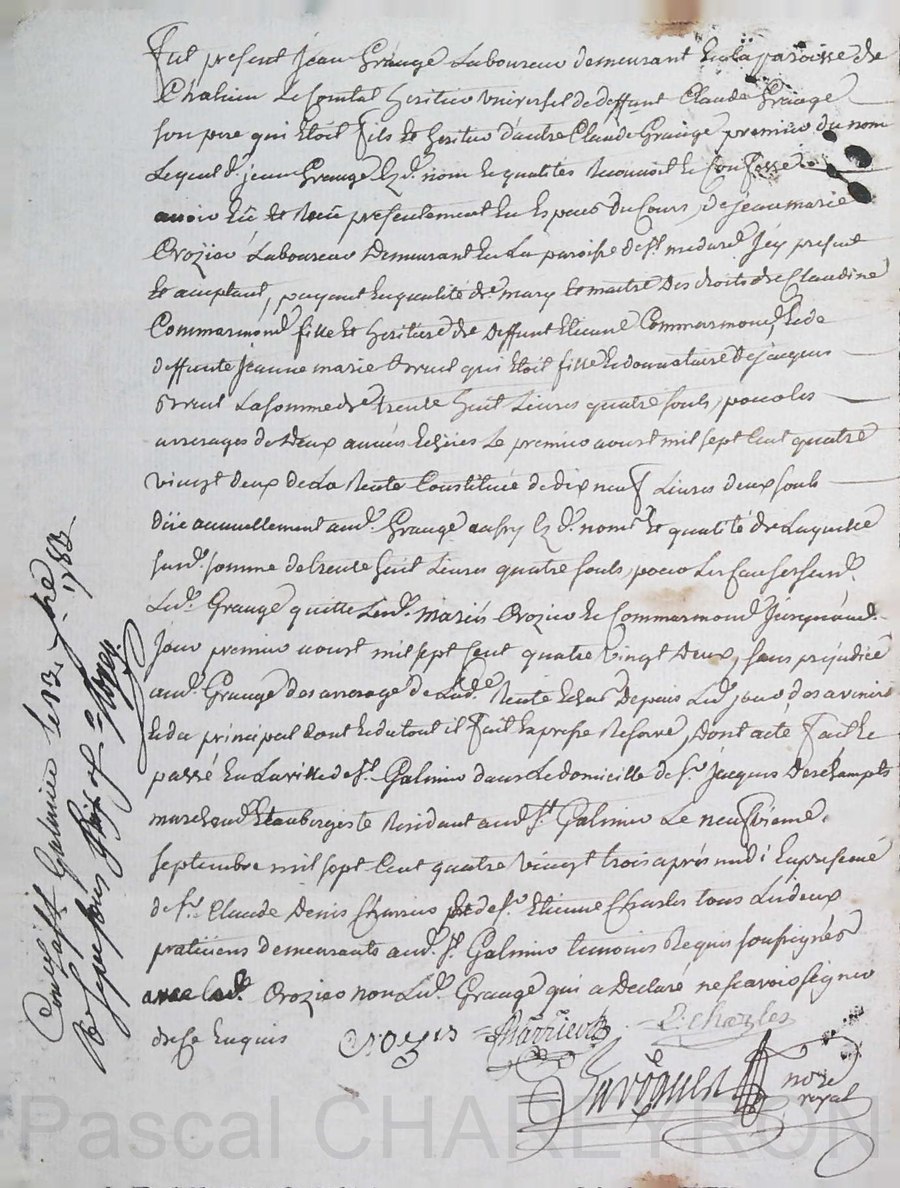 Fut present jean Grange Laboureur demeurant En la paroisse de
Chalain Le Comtal heritier universel de deffunt Claude Grange
son pere qui Etoit fils Et heritier d'autre Claude Grange premier du nom
Lequel d. jean Grange Ez d. nom Et qualités Reconnoit Et Confesse
avoir Eü Et Receu presentement En Especes du Cours, de jean marie
Crozier Laboureur Demeurant En La paroisse de St. medard Jcy present
Et acceptant, payant En qualité de mary Et maitre Des droits de Claudine
Commarmond fille Et heritiere de deffunt Etienne Commarmond, Et de
deffunte jeanne marie qui Etoit fille Et donnataire de jacques
La somme de trente huit Livres quatre souls, pour les
arrerages de Deux années Echües Le premier aoust mil sept Cent quatre
vingt deux de La Rente Constituée de dix neuf Livres deux souls
düe annuellement aud. Grange Ez d. nom Et qualité de Laquelle
susd. somme de trente huit Livres quatre souls, pour Les Causes susd.
Led. Grange quitte Lesd. mariés Crozier Et Commarmond Jusqu'aud.
jour premier aoust mil sept Cent quatre vingt Deux, sans prejudice
aud. Grange des arrerage de Lad. Rente Echus Depuis Led. jour des avenir
Et du principal dont Et du tout il Fait Expresse Reserve, Dont acte Fait Et
passé En La ville de St. Galmier dans Le domicille de Sr. Jacques Deschamps
marchand Et aubergiste Residant aud. St. Galmier Le neufvieme
septembre mil sept Cent quatre vingt trois après midi En presence
de Sr. Claude Denis Charrier Et de Sr. Etienne Charles tous Les deux
praticiens demeurants aud. St. Galmier temoins Requis soussignés
avec Led. Crozier non Led. Grange qui a Declaré ne scavoir signer
de ce Enquis
Crozier
Charrier
E. charles
Larögues nore royal
Con. à St Galmier le 13. 7bre 1783.
Reçu